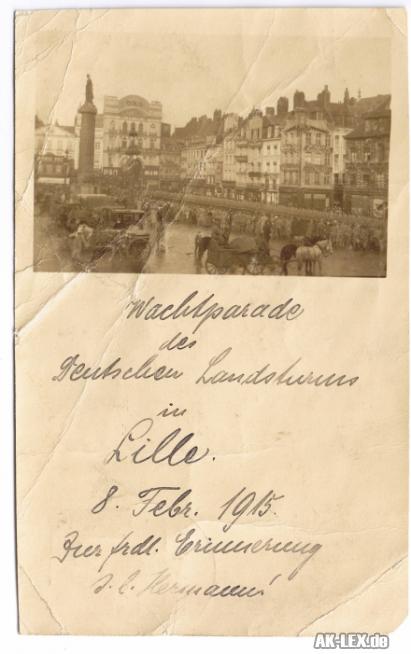 Wachtparade
des
Deutschen Landsturms
in
Lille.
8. Febr. 1915.
Zur frdl. Erinnerung
Hermann
AK-LEX.de